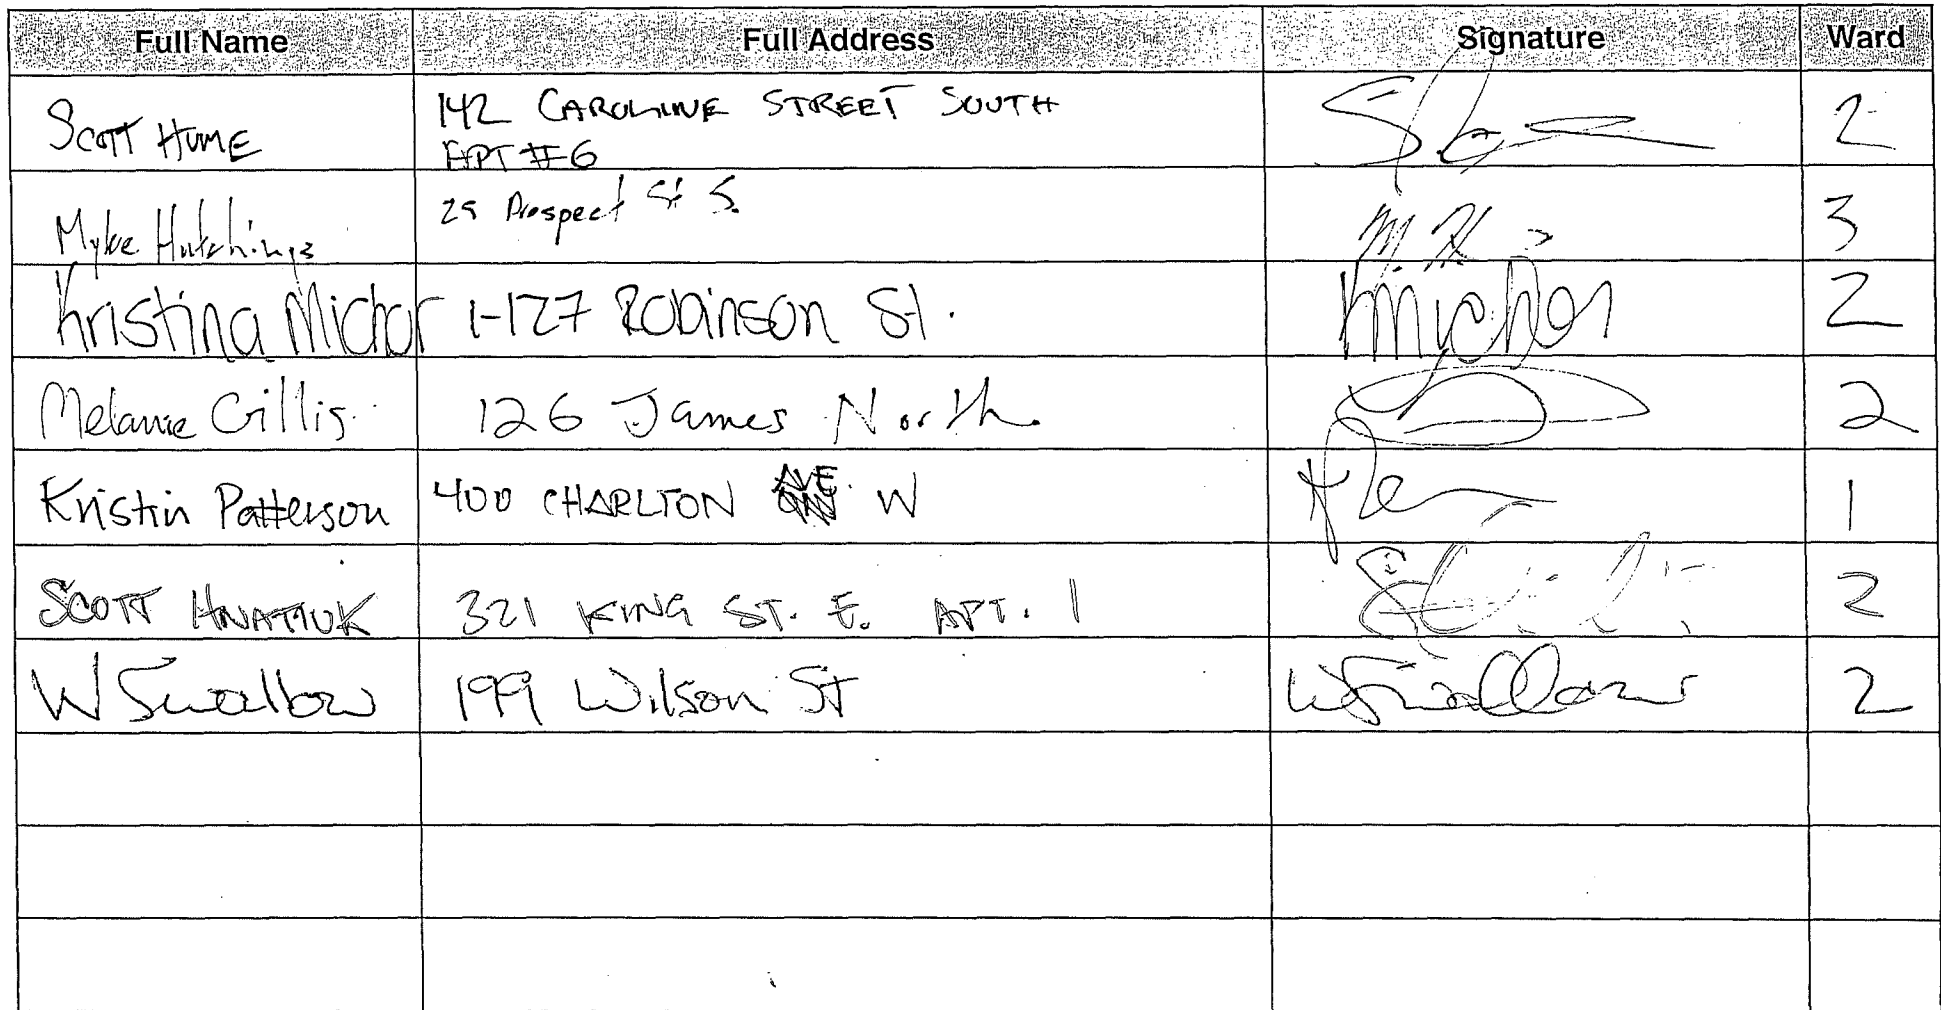 Full Name Full Address Signature Ward
Scott Hume 142 CAROLINE STREET SOUTH 2
APT #6
Myke Hutchings 25 Prospect St S. M. H 3
Kristina Michor 1-127 Robinson St. KMichor 2
Melanie Gillis 126 James North 2
Kristin Patterson 400 CHARLTON AVE W 1
SCOTT HNATIUK 321 KING ST. E. APT. 1 2
W Swallow 199 Wilson St W Swallow 2